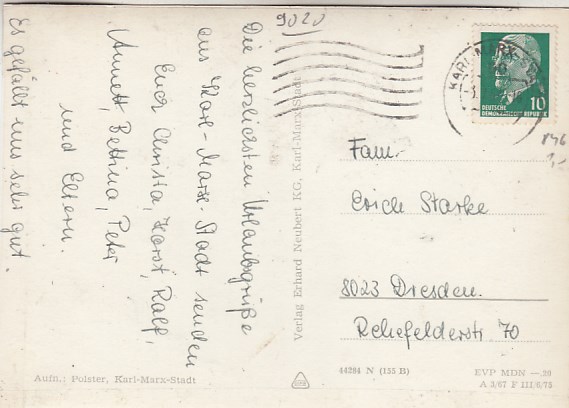 9020
Die herzlichsten Urlaubsgrüße
aus Karl-Marx-Stadt senden
Euch Christa, Horst, Ralf,
Annett, Bettina, Peter
und Eltern.
Es gefällt uns sehr gut.
Verlag Erhard Neubert KG, Karl-Marx-Stadt
KARL-MARX-
DEUTSCHE
DEMOKRATISCHE REPUBLIK
10
846
1,-
Fam.
Erich Starke
8023 Dresden.
Rehefelderstr. 70
Aufn.: Polster, Karl-Marx-Stadt
44284 N (155 B)
EVP MDN —.20
A 5/67 F III/6/75